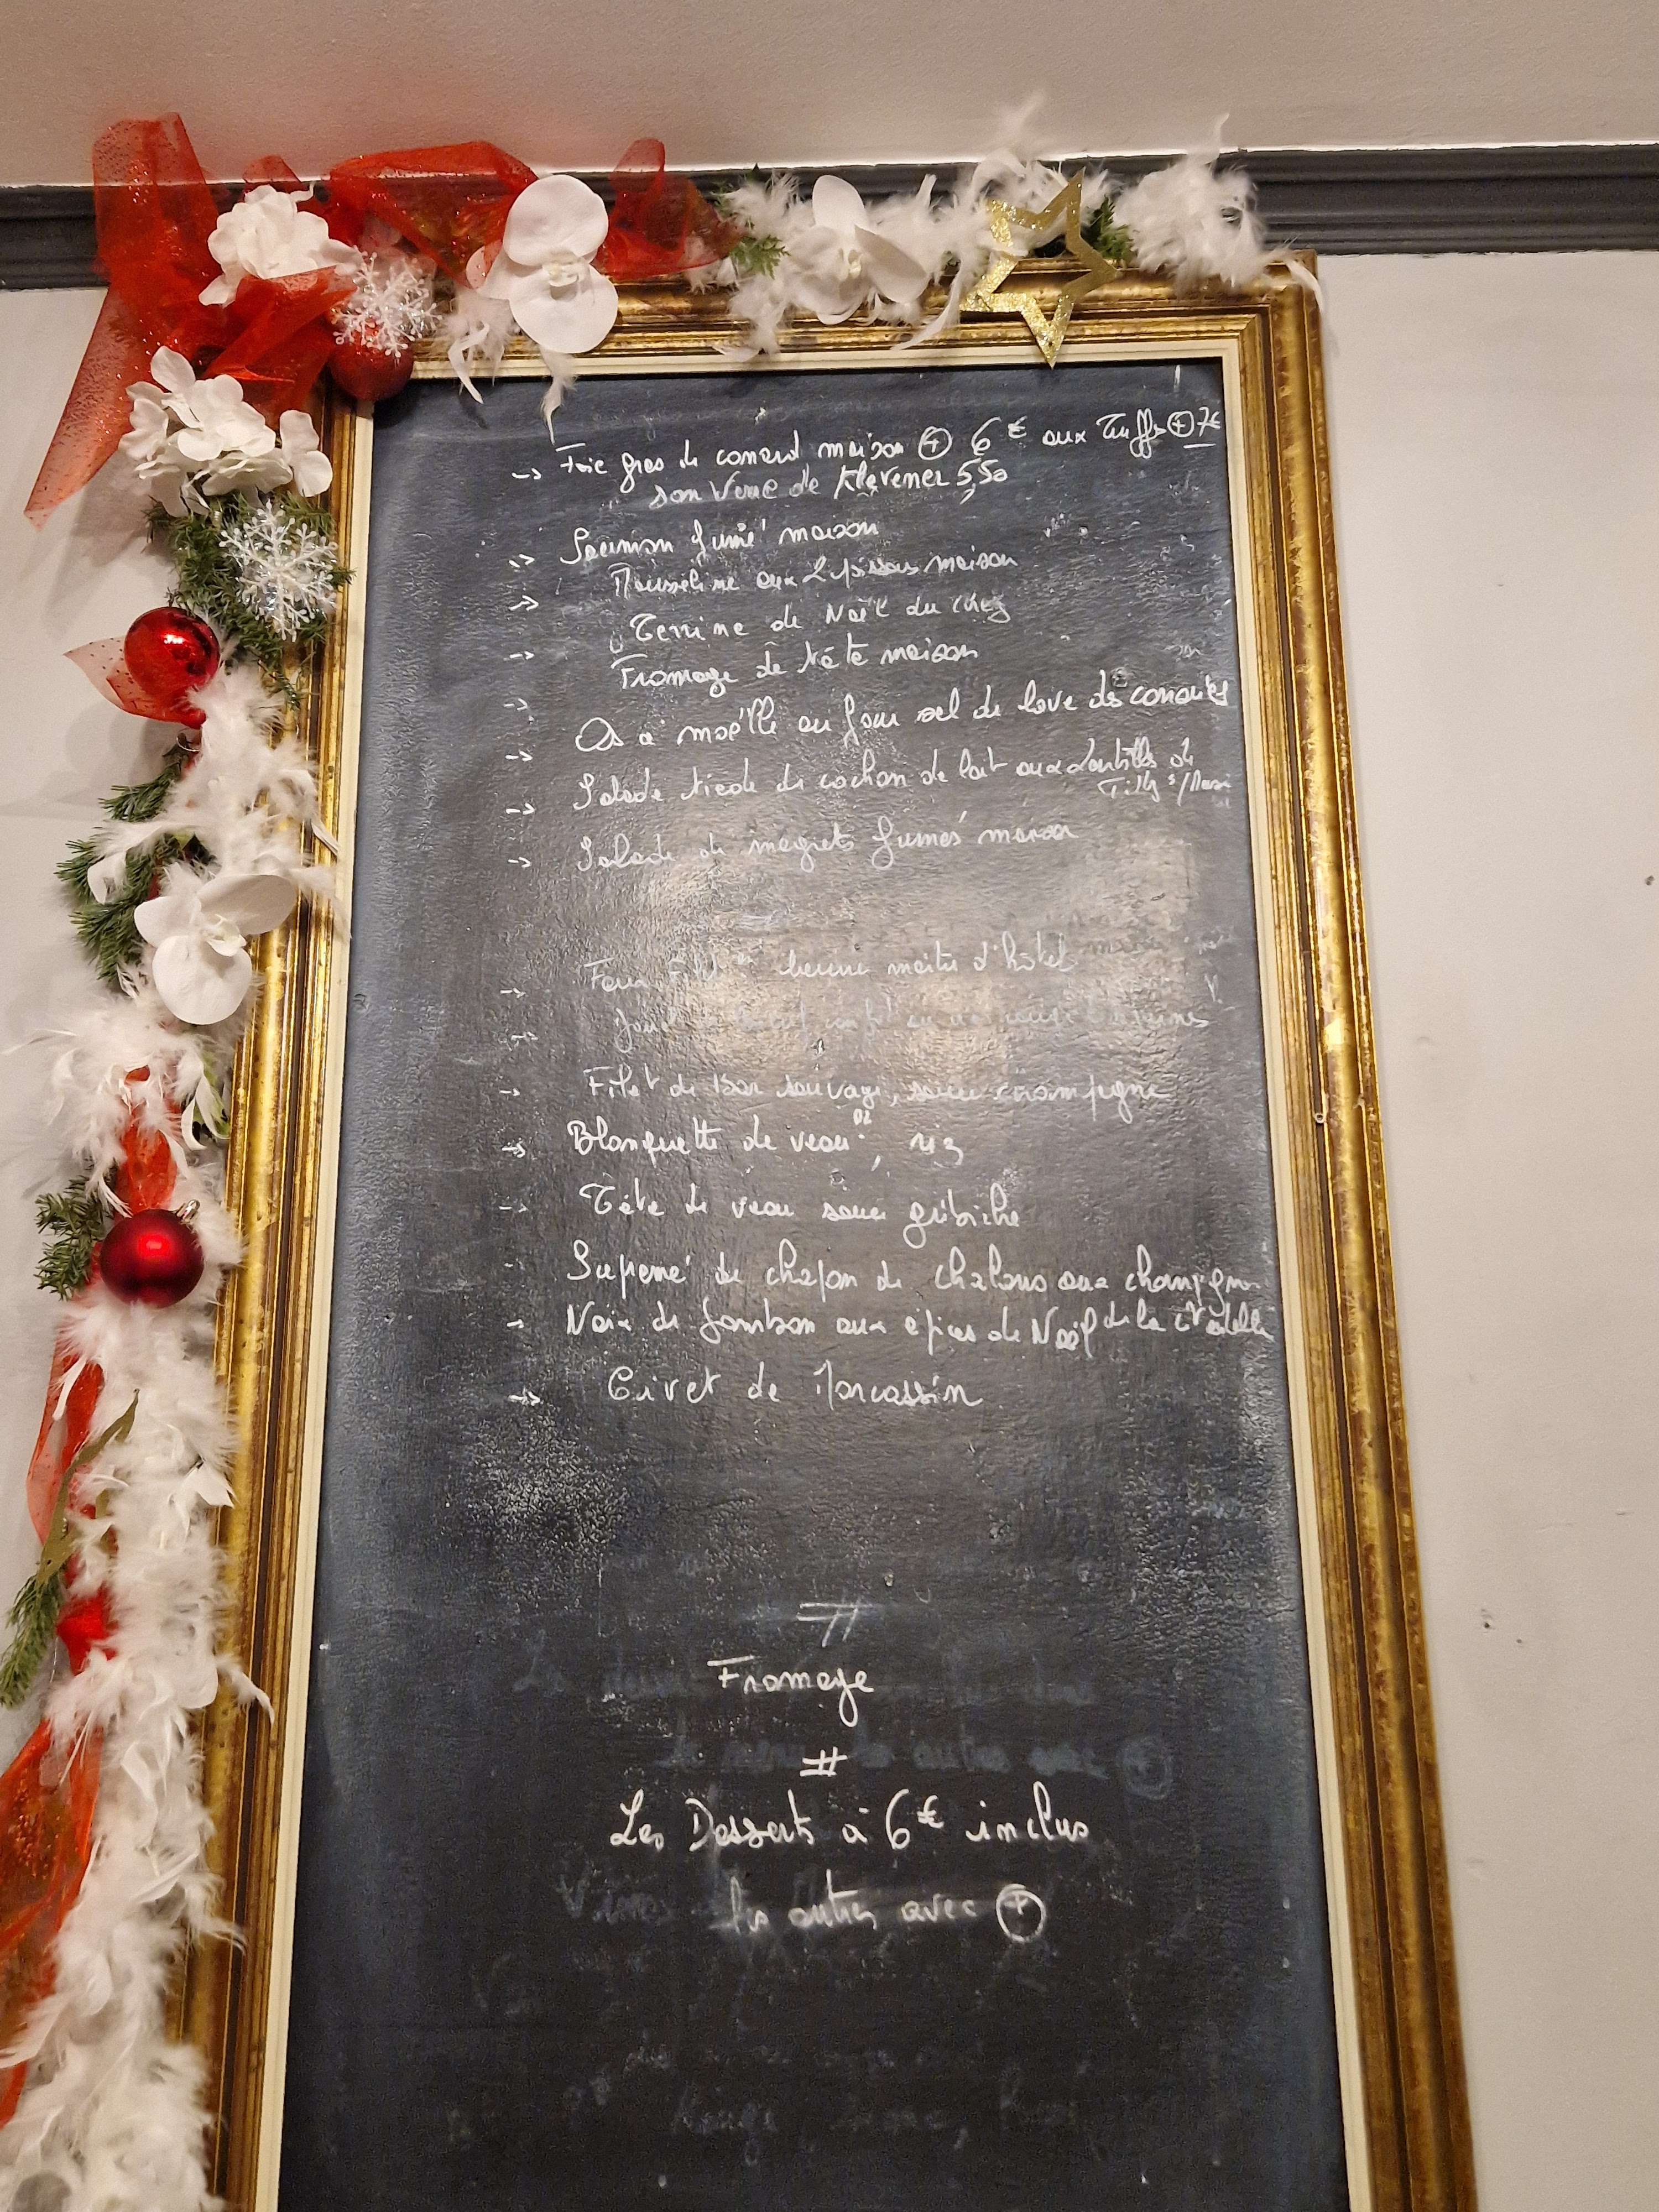 -> Foie gras de canard maison ⊕ 6 € aux Truffes ⊕ 7€
son Verre de Klevener 5,50
-> Saumon fumé maison
-> Mousseline aux 2 poissons maison
-> Terrine de Noël du chez
-> Fromage de tête maison
-> Os à moëlle au four sel de
-> Salade tiède de cochon de lait aux Lentilles de
-> Salade de magrets fumés maison
-> beurre maitre d'hôtel
-> Filet de Bar sauvage, sauce champagne
-> Blanquette de veau, riz
-> Tête de veau sauce gribiche
- Suprême de chapon de Chalons aux champign
- Noix de Jambon aux épices de Noël de la
-> Civet de Marcassin
#
Fromage
#
Les Desserts à 6€ inclus
les autres avec ⊕